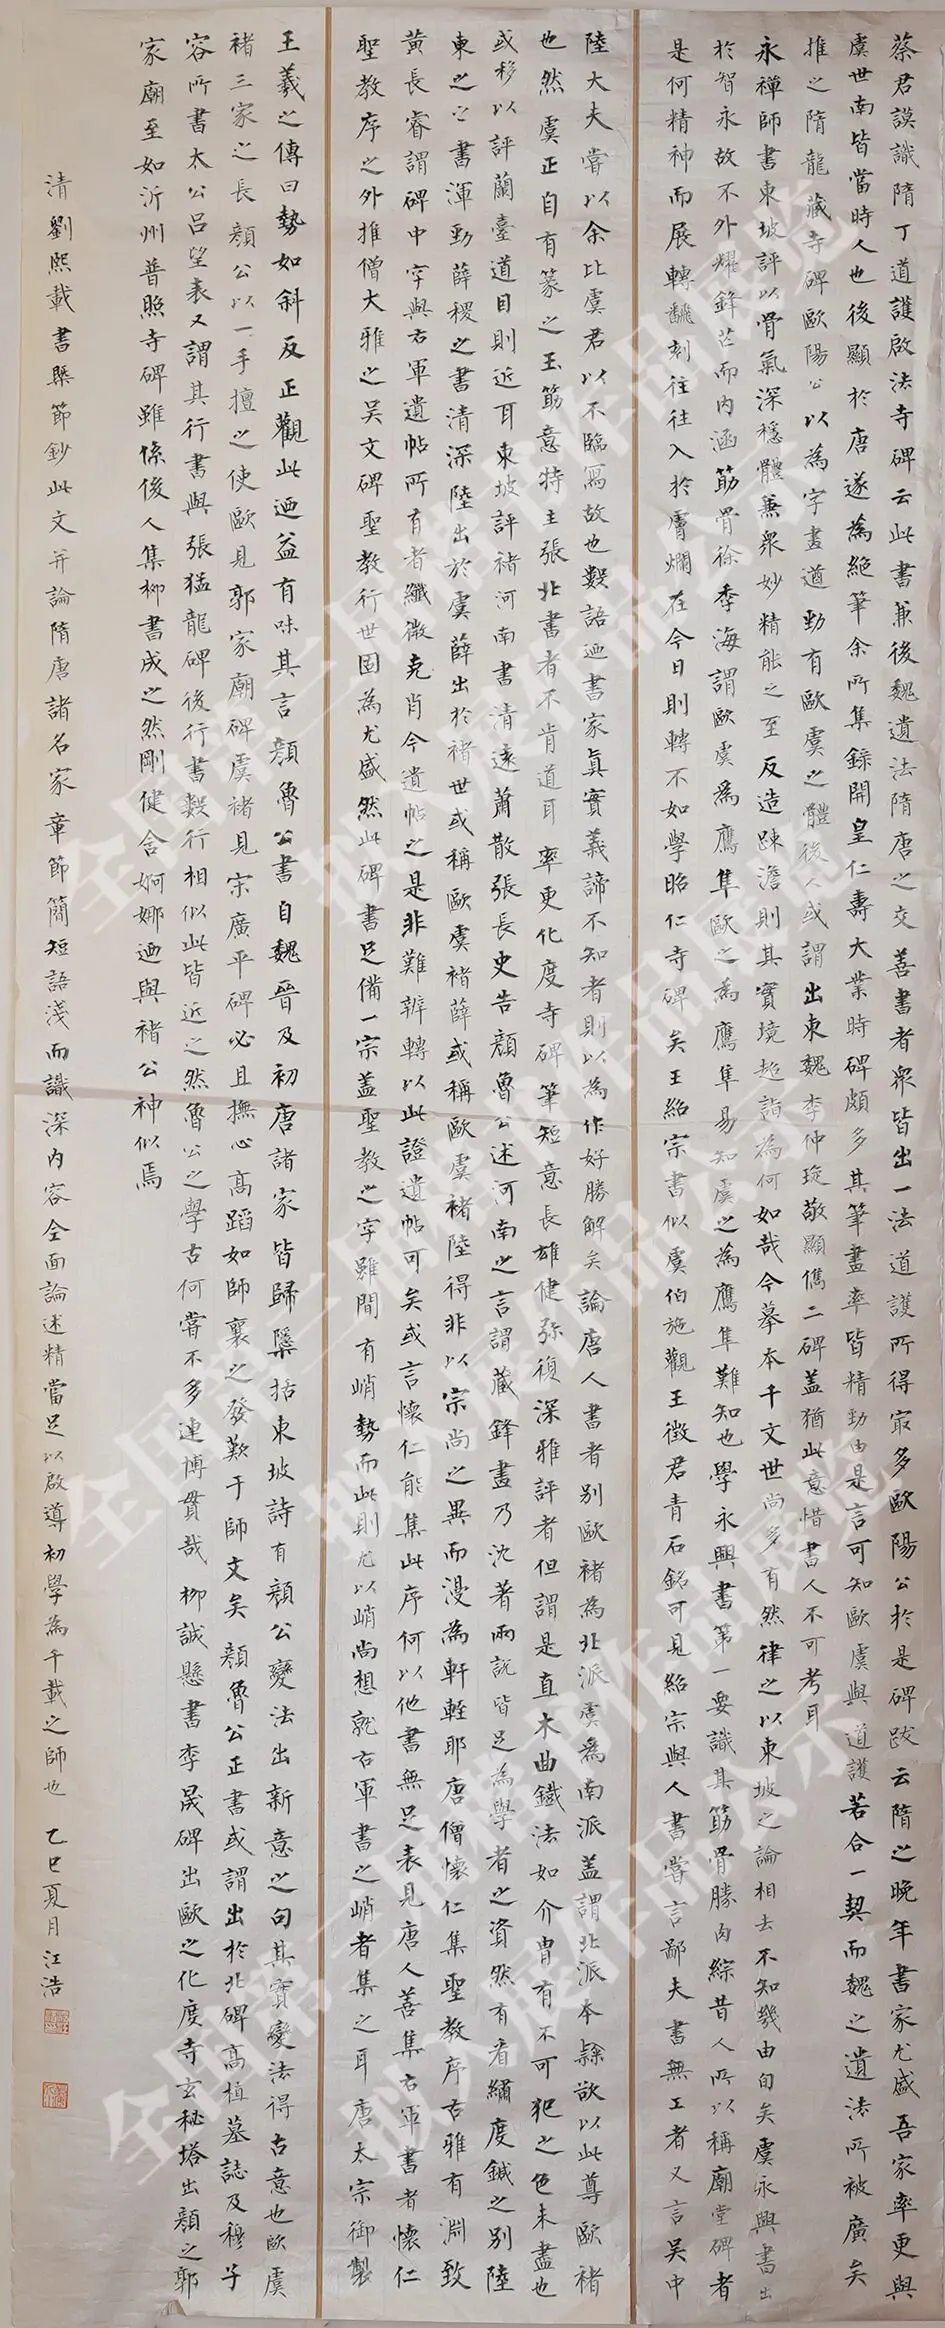 蔡君謨識隋丁道護啟法寺碑云此書兼後魏遺法隋唐之交善書者眾皆出一法道護所得最多歐陽公於是碑跋云隋之晚年書家尤盛吾家率更與
虞世南皆當時人也後顯於唐遂為絕筆余所集錄開皇仁壽大業時碑頗多其筆畫率皆精勁由是言可知歐虞與道護若合一契而魏之遺法所被廣矣
推之隋龍藏寺碑歐陽公以為字畫遒勁有歐虞之體後人或謂出東魏李仲琁敬顯儁二碑蓋猶此意惜書人不可考耳
永禪師書東坡評以骨氣深穩體兼眾妙精能之至反造疎澹則其實境超詣為何如哉今摹本千文世尚多有然律之以東坡之論相去不知幾由旬矣虞永興書出
於智永故不外耀鋒芒而內涵筋骨徐季海謂歐虞為鷹隼歐之為鷹隼易知虞之為鷹隼難知也學永興書第一要識其筋骨勝肉綜昔人所以稱廟堂碑者
是何精神而展轉翻刻往往入於膚爛在今日則轉不如學昭仁寺碑矣王紹宗書似虞伯施觀王徵君青石銘可見紹宗與人書嘗言鄙夫書無工者又言吳中
陸大夫嘗以余比虞君以不臨寫故也數語迺書家真實義諦不知者則以為作好勝解矣論唐人書者別歐褚為北派虞為南派蓋謂北派本隸欲以此尊歐褚
也然虞正自有篆之玉筯意特主張北書者不肯道耳率更化度寺碑筆短意長雄健彌復深雅評者但謂是直木曲鐵法如介冑有不可犯之色未盡也
或移以評蘭臺道因則近耳東坡評褚河南書清遠蕭散張長史告顏魯公述河南之言謂藏鋒畫乃沈著兩說皆足為學者之資然有看繡度鍼之別陸
柬之之書渾勁薛稷之書清深陸出於虞薛出於褚世或稱歐虞褚薛或稱歐虞褚陸得非以宗尚之異而漫為軒輊耶唐僧懷仁集聖教序古雅有淵致
黃長睿謂碑中字與右軍遺帖所有者纖微克肖今遺帖之是非難辨轉以此證遺帖可矣或言懷仁能集此序何以他書無足表見唐人善集右軍書者懷仁
聖教序之外推僧大雅之吳文碑聖教行世固為尤盛然此碑書足備一宗蓋聖教之字雖間有峭勢而此則尤以峭尚想就右軍書之峭者集之耳唐太宗御製
王羲之傳曰勢如斜反正觀此迺益有味其言顏魯公書自魏晉及初唐諸家皆歸櫽括東坡詩有顏公變法出新意之句其實變法得古意也歐虞
褚三家之長顏公以一手擅之使歐見郭家廟碑虞褚見宋廣平碑必且撫心高蹈如師襄之發歎于師文矣顏魯公正書或謂出於北碑高植墓誌及穆子
容所書太公呂望表又謂其行書與張猛龍碑後行書數行相似此皆近之然魯公之學古何嘗不多連博貫哉柳誠懸書李晟碑出歐之化度寺玄秘塔出顏之郭
家廟至如沂州普照寺碑雖係後人集柳書成之然剛健含婀娜迺與褚公神似焉
清劉熙載書槩節鈔此文并論隋唐諸名家章節簡短語淺而識深內容全面論述精當足以啟導初學為千載之師也乙巳夏月江浩